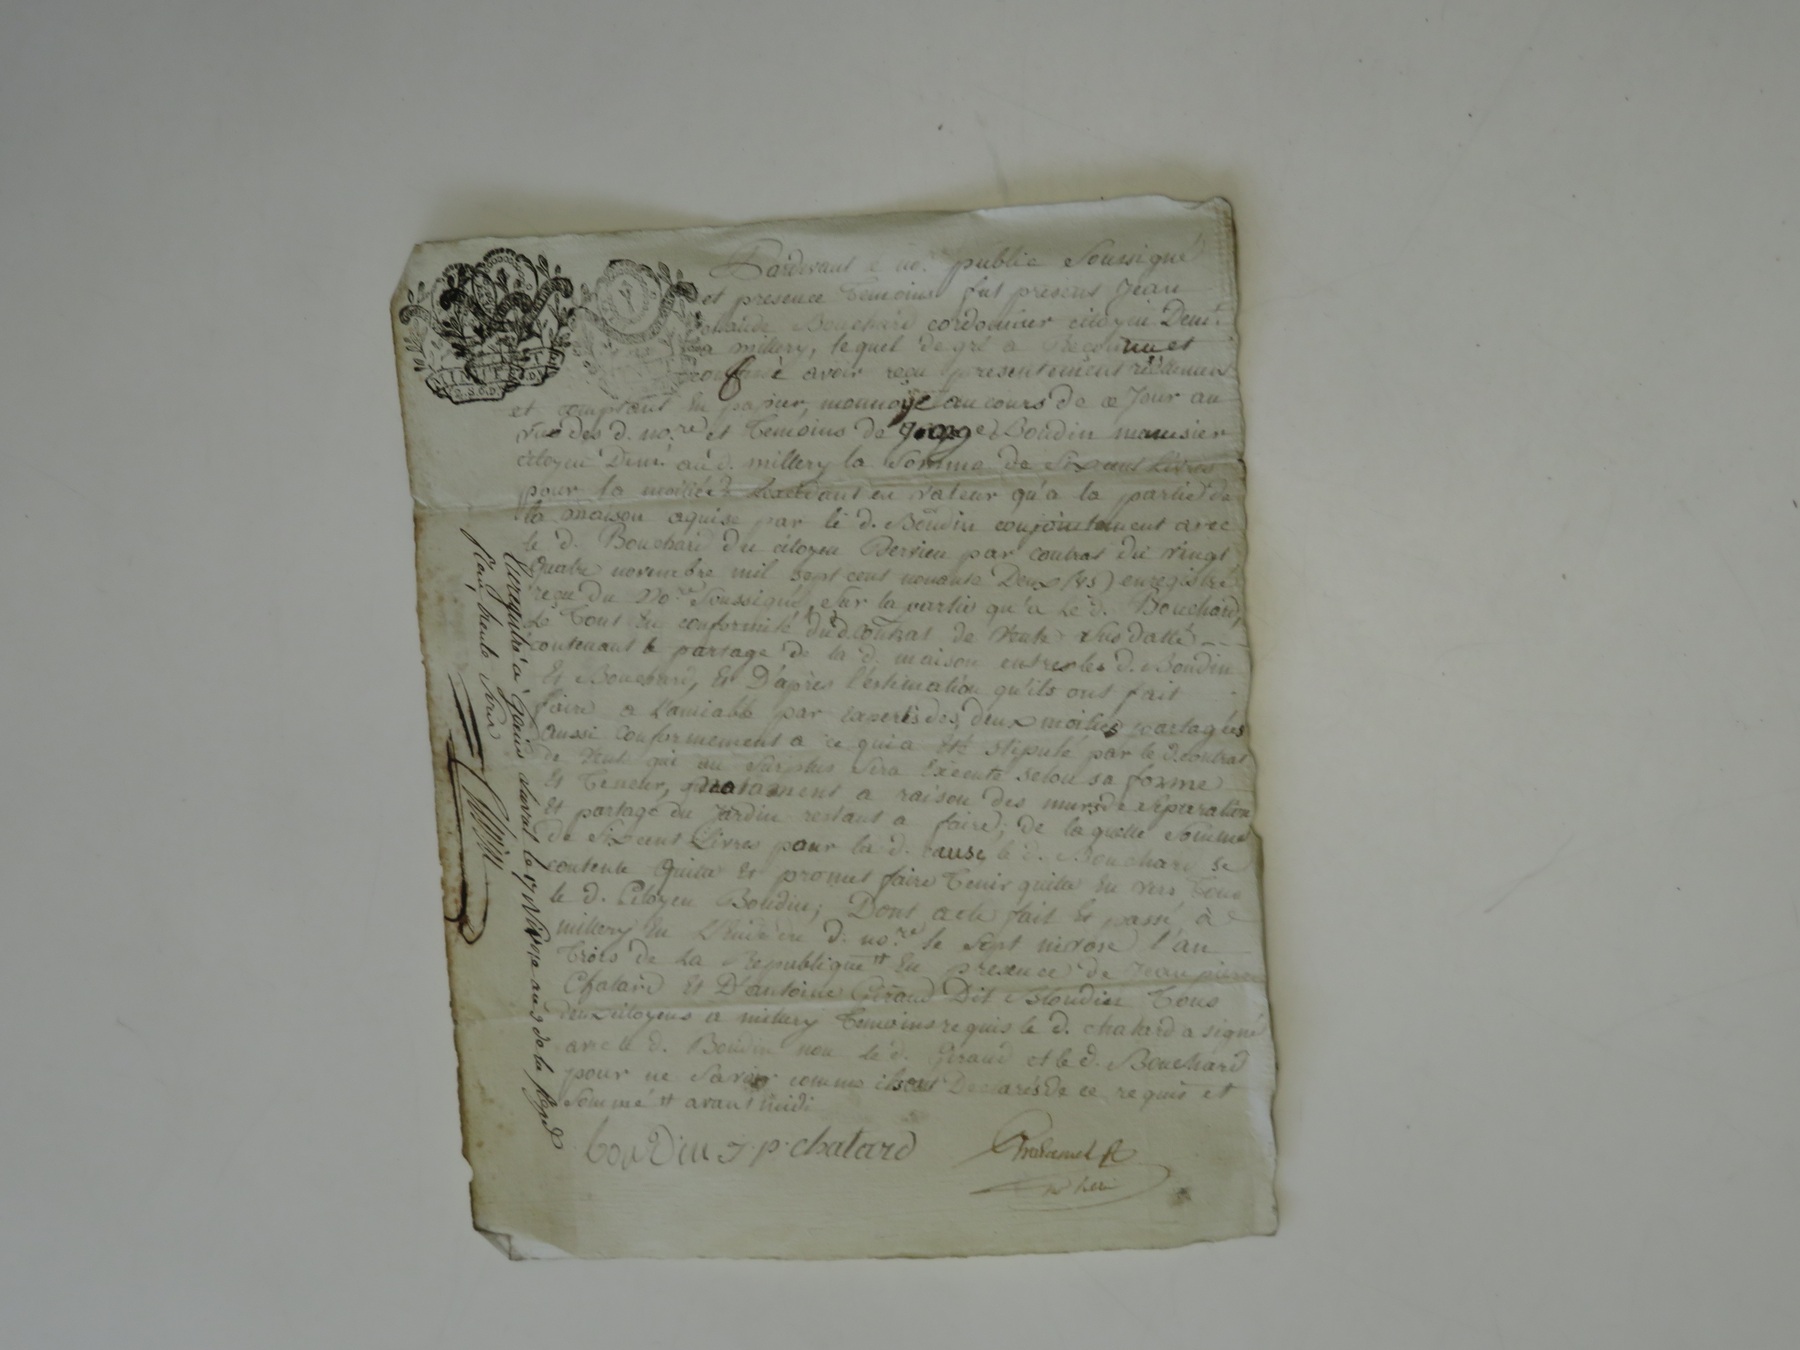 Pardevant le no.re public Soussigné
et presence Temoins fut présent Jean
Claude Bouchard cordonnier citoyen Demt.
a millery, lequel de gré a reconnu et
confessé avoir reçu presentement réellement
et comptant En papier, monnoye au cours de ce Jour au
vue des d. no.re et Temoins de George Boudin menusier
citoyen Demt. au d. millery la Somme de Six cent Livres
pour la moitié Excédant en valeur qu'a la partie de
la maison aquise par le d. Boudin conjointement avec
le d. Bouchard du citoyen Perrieu par contrat du vingt
quatre novembre mil sept cent nonante Deux (vs) enregistré
reçu du No.re Soussigné, Sur la partie qu'a Le d. Bouchard,
Le Tout En conformité du d. Contrat de Vente Sus datté
contenant le partage de la d. maison entre les d. Boudin
Et Bouchard, Et D'après l'estimation qu'ils ont fait
faire a L'amiable par Experts des deux moities partagées
aussi Conformement a ce qui a Eté stipulé par le d. contrat
de Vente qui au Surplus Sera Exécuté selon sa forme
Et Teneur, notament a raison des murs de Séparation
Et partage du Jardin restant a faire; de laquelle Somme
de Six cent Livres pour la d. cause le d. Bouchard se
contente Quitte Et promet faire Tenir quitte En vers Tous
le d. Citoyen Boudin; Dont acte fait Et passé à
millery En L'Etude du d. no.re le Sept nivose l'an
Trois de La Republique En presence de Jean pierre
Chatard Et D'antoine Giraud Dit Blondin Tous
deux citoyens a millery Temoins requis le d. chatard a signé
avec le d. Boudin non le d. Giraud et le d. Bouchard
pour ne Savoir comme ils ont Déclarés de ce requis et
Sommé avant midi
bouDin J. p. chatard
Enregistré à Genis Laval le 17 Nivose an 3 de la Repub
Reçu trente sous